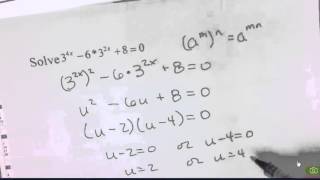 Solve 3^{4x} - 6*3^{2x} + 8 = 0
(a^m)^n = a^{mn}
(3^{2x})^2 - 6·3^{2x} + 8 = 0
u^2 - 6u + 8 = 0
(u-2)(u-4) = 0
u-2=0 or u-4=0
u=2 or u=4